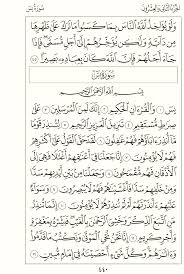 الجزء الثاني والعشرون سورة يس
وَلَوْ يُؤَاخِذُ ٱللَّهُ ٱلنَّاسَ بِمَا كَسَبُوا۟ مَا تَرَكَ عَلَىٰ ظَهْرِهَا
مِن دَآبَّةٍ وَلَٰكِن يُؤَخِّرُهُمْ إِلَىٰٓ أَجَلٍ مُّسَمًّى فَإِذَا
جَآءَ أَجَلُهُمْ فَإِنَّ ٱللَّهَ كَانَ بِعِبَادِهِۦ بَصِيرًۢا ٤٥
سورة يس
بِسْمِ ٱللَّهِ ٱلرَّحْمَٰنِ ٱلرَّحِيمِ
يسٓ ١ وَٱلْقُرْءَانِ ٱلْحَكِيمِ ٢ إِنَّكَ لَمِنَ ٱلْمُرْسَلِينَ ٣ عَلَىٰ
صِرَٰطٍ مُّسْتَقِيمٍ ٤ تَنزِيلَ ٱلْعَزِيزِ ٱلرَّحِيمِ ٥ لِتُنذِرَ قَوْمًا
مَّآ أُنذِرَ ءَابَآؤُهُمْ فَهُمْ غَٰفِلُونَ ٦ لَقَدْ حَقَّ ٱلْقَوْلُ عَلَىٰٓ أَكْثَرِهِمْ
فَهُمْ لَا يُؤْمِنُونَ ٧ إِنَّا جَعَلْنَا فِىٓ أَعْنَٰقِهِمْ أَغْلَٰلًا فَهِىَ إِلَى
ٱلْأَذْقَانِ فَهُم مُّقْمَحُونَ ٨ وَجَعَلْنَا مِنۢ بَيْنِ أَيْدِيهِمْ سَدًّا
وَمِنْ خَلْفِهِمْ سَدًّا فَأَغْشَيْنَٰهُمْ فَهُمْ لَا يُبْصِرُونَ ٩ وَسَوَآءٌ
عَلَيْهِمْ ءَأَنذَرْتَهُمْ أَمْ لَمْ تُنذِرْهُمْ لَا يُؤْمِنُونَ ١٠ إِنَّمَا تُنذِرُ
مَنِ ٱتَّبَعَ ٱلذِّكْرَ وَخَشِىَ ٱلرَّحْمَٰنَ بِٱلْغَيْبِ فَبَشِّرْهُ بِمَغْفِرَةٍ
وَأَجْرٍ كَرِيمٍ ١١ إِنَّا نَحْنُ نُحْىِ ٱلْمَوْتَىٰ وَنَكْتُبُ مَا قَدَّمُوا۟
وَءَاثَٰرَهُمْ وَكُلَّ شَىْءٍ أَحْصَيْنَٰهُ فِىٓ إِمَامٍ مُّبِينٍ ١٢
٤٤٠